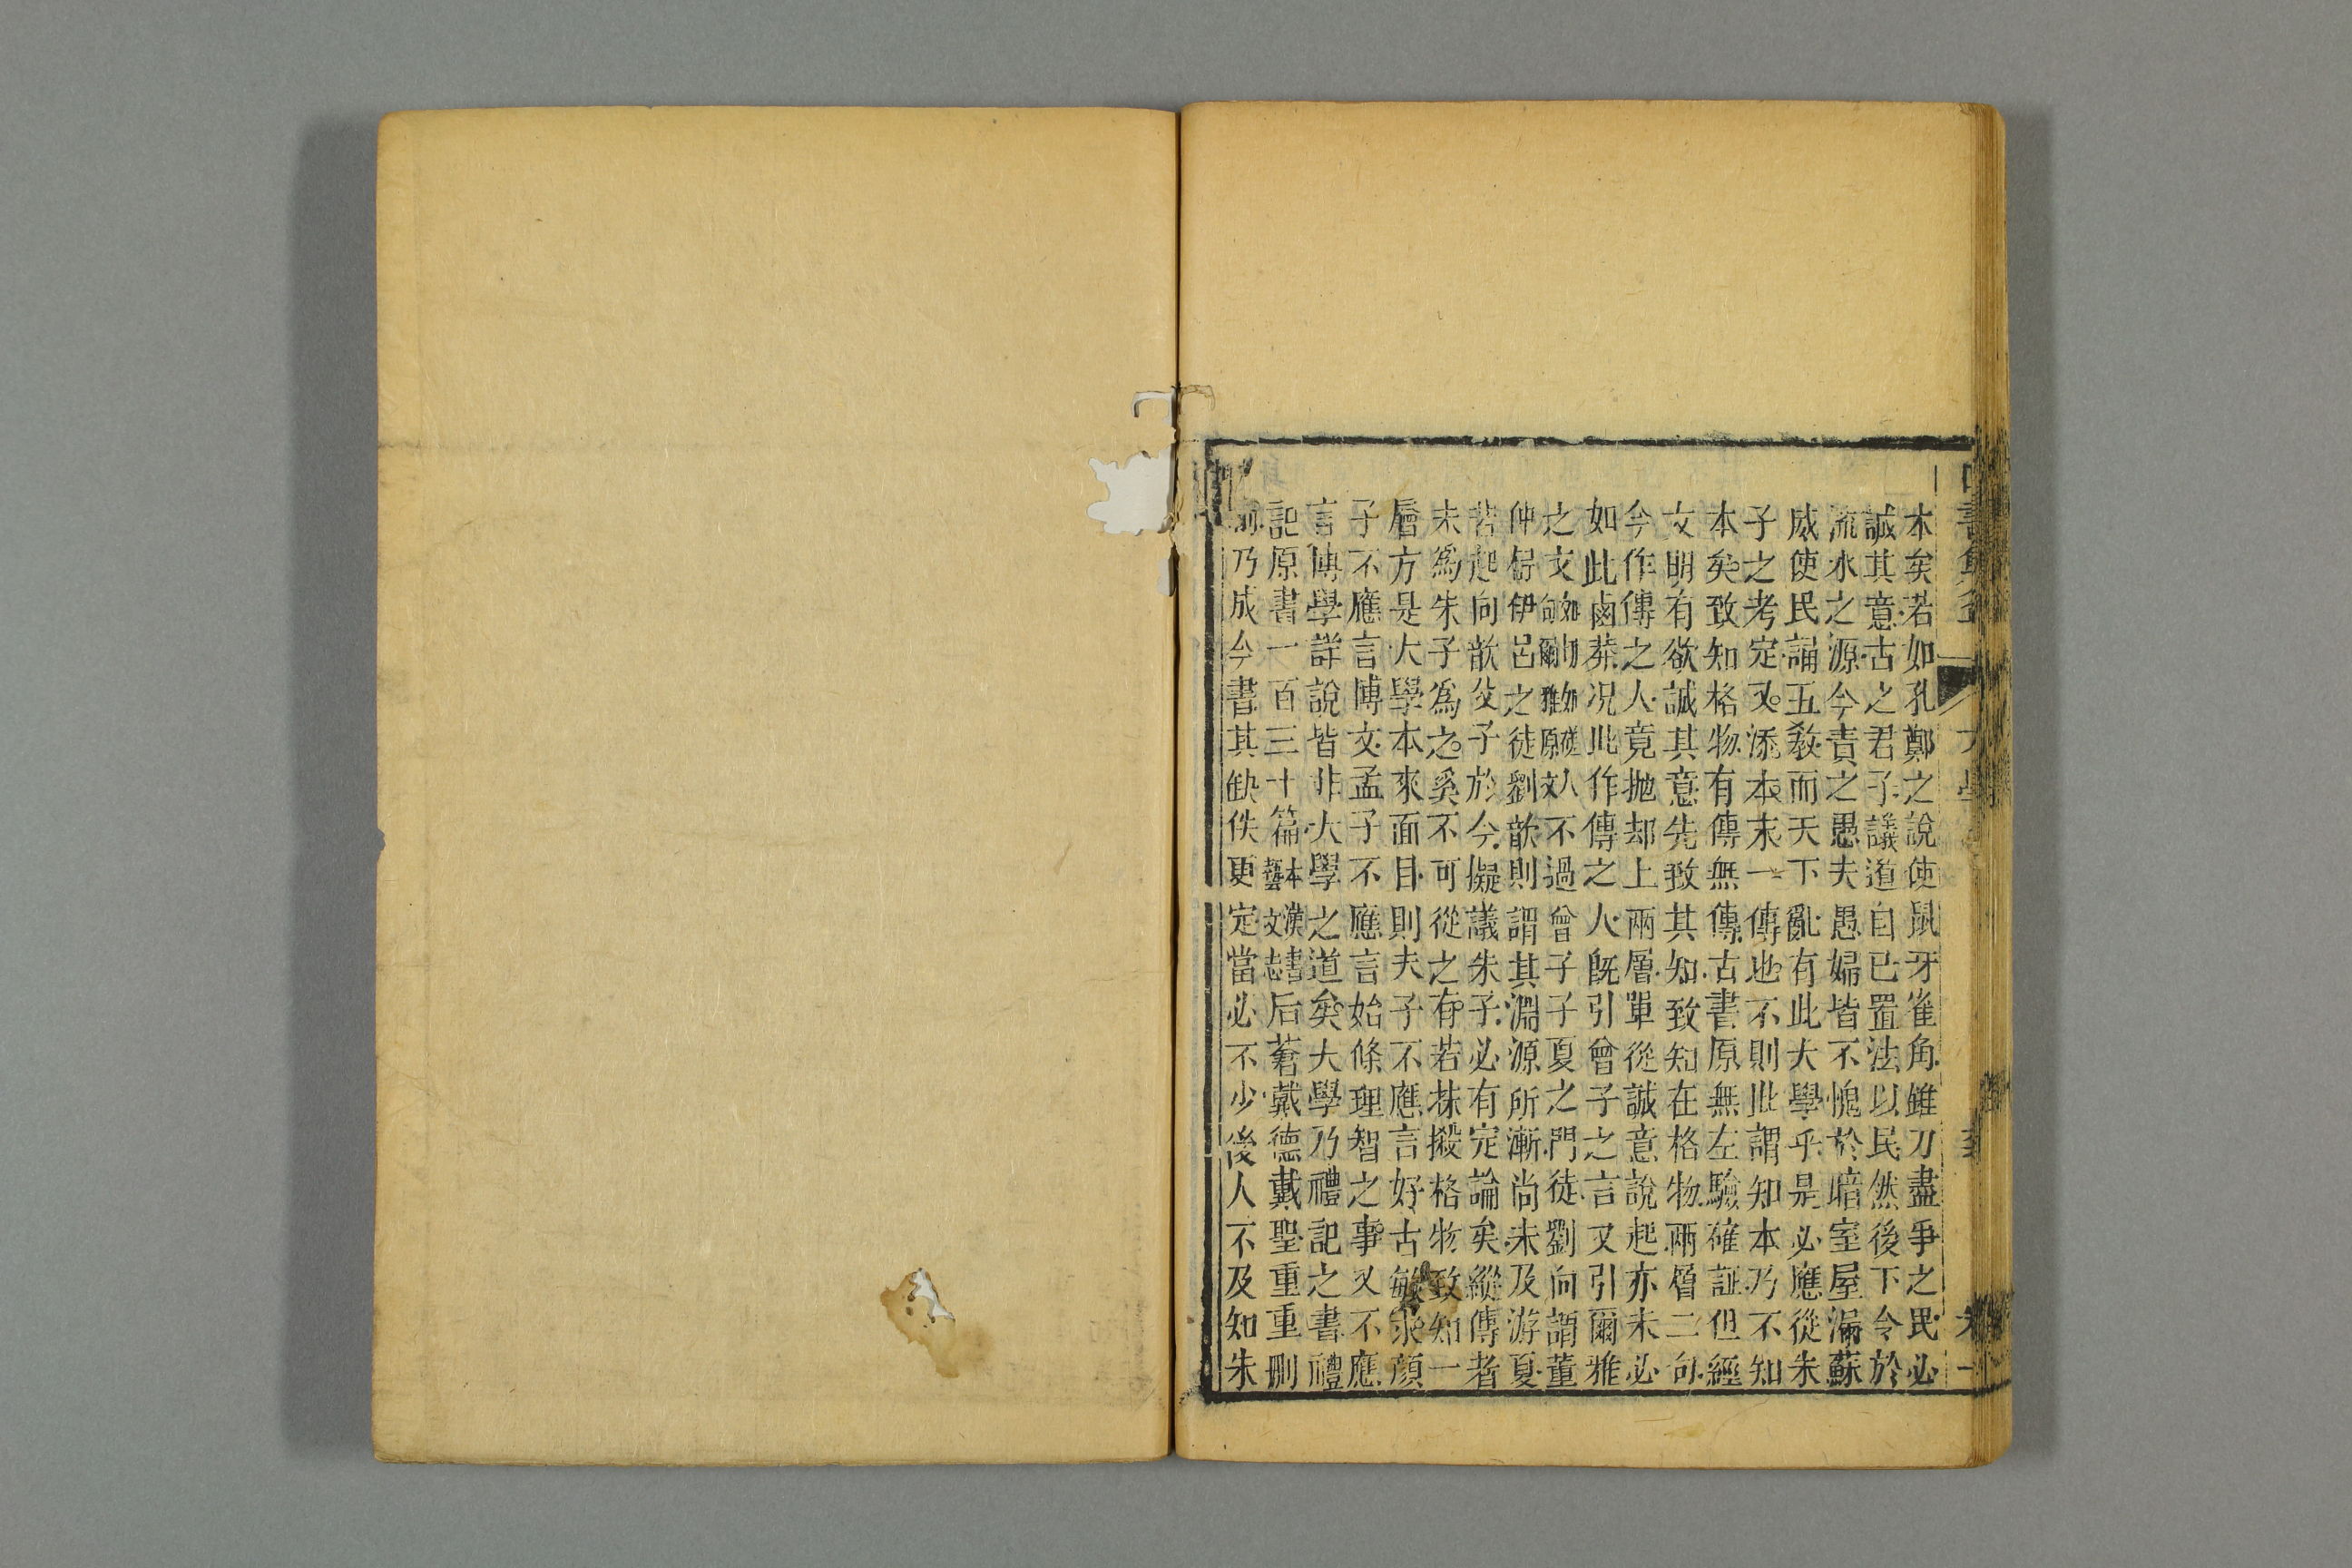 本矣若如孔鄭之說使鼠牙雀角錐刀盡爭之民必
誠其意古之君子議道自已置法以民然後下令於
流水之源今責之愚夫愚婦皆不愧於暗室屋漏蘇
威使民誦五敎而天下亂有此大學乎是必應從朱
子之考定又添本末一傳也不則此謂知本乃不知
本矣致知格物有傳無傳古書原無左驗確証但經
文明有欲誠其意先致其知致知在格物兩層二句
今作傳之人竟抛却上兩層單從誠意說起亦未必
如此鹵莽况此作傳之人既引曾子之言又引爾雅
之文如切如磋八句爾雅原文不過曾子子夏之門徒劉向謂董
仲舒伊呂之徒劉歆則謂其淵源所漸尚未及游夏
若起向歆父子於今擬議朱子必有定論矣縱傳者
未爲朱子爲之奚不可從之有若抹搬格物致知一
層方是大學本來面目則夫子不應言好古敏求顔
子不應言博文孟子不應言始條理智之事又不應
言博學詳說皆非大學之道矣大學乃禮記之書禮
記原書一百三十篇本漢書藝文志后蒼戴德戴聖重重刪
乃成今書其缺佚更定當必不少後人不及知朱
大學